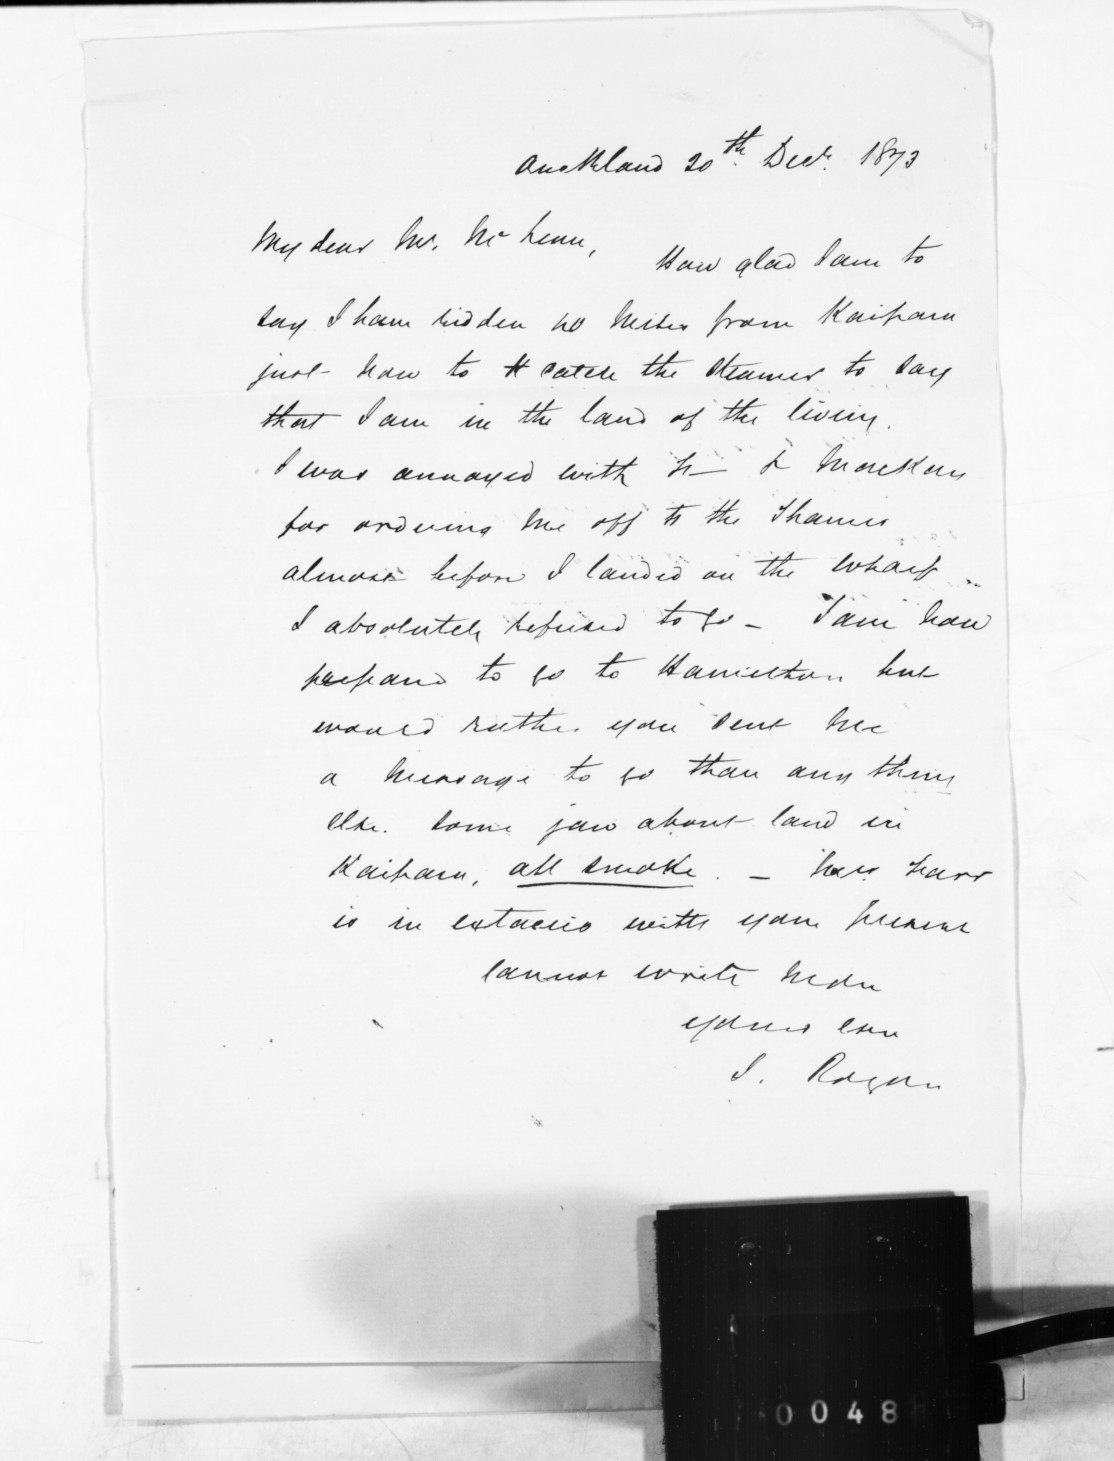 Auckland 20th Decr. 1873
My dear Mr. McLean,
How glad I am to
say I have ridden 40 miles from Kaipara
just now to catch the steamer to say
that I am in the land of the living.
I was annoyed with H T
for ordering me off to the Thames
almost before I landed on the wharf
I absolutely refused to go - I am now
prepared to go to Hamilton but
would rather you sent me
a message to go than any thing
else. Some jaw about land in
Kaipara, all smoke. - Mrs
is in extacies with your present
cannot write more
yours ever
J. Rogan
0048